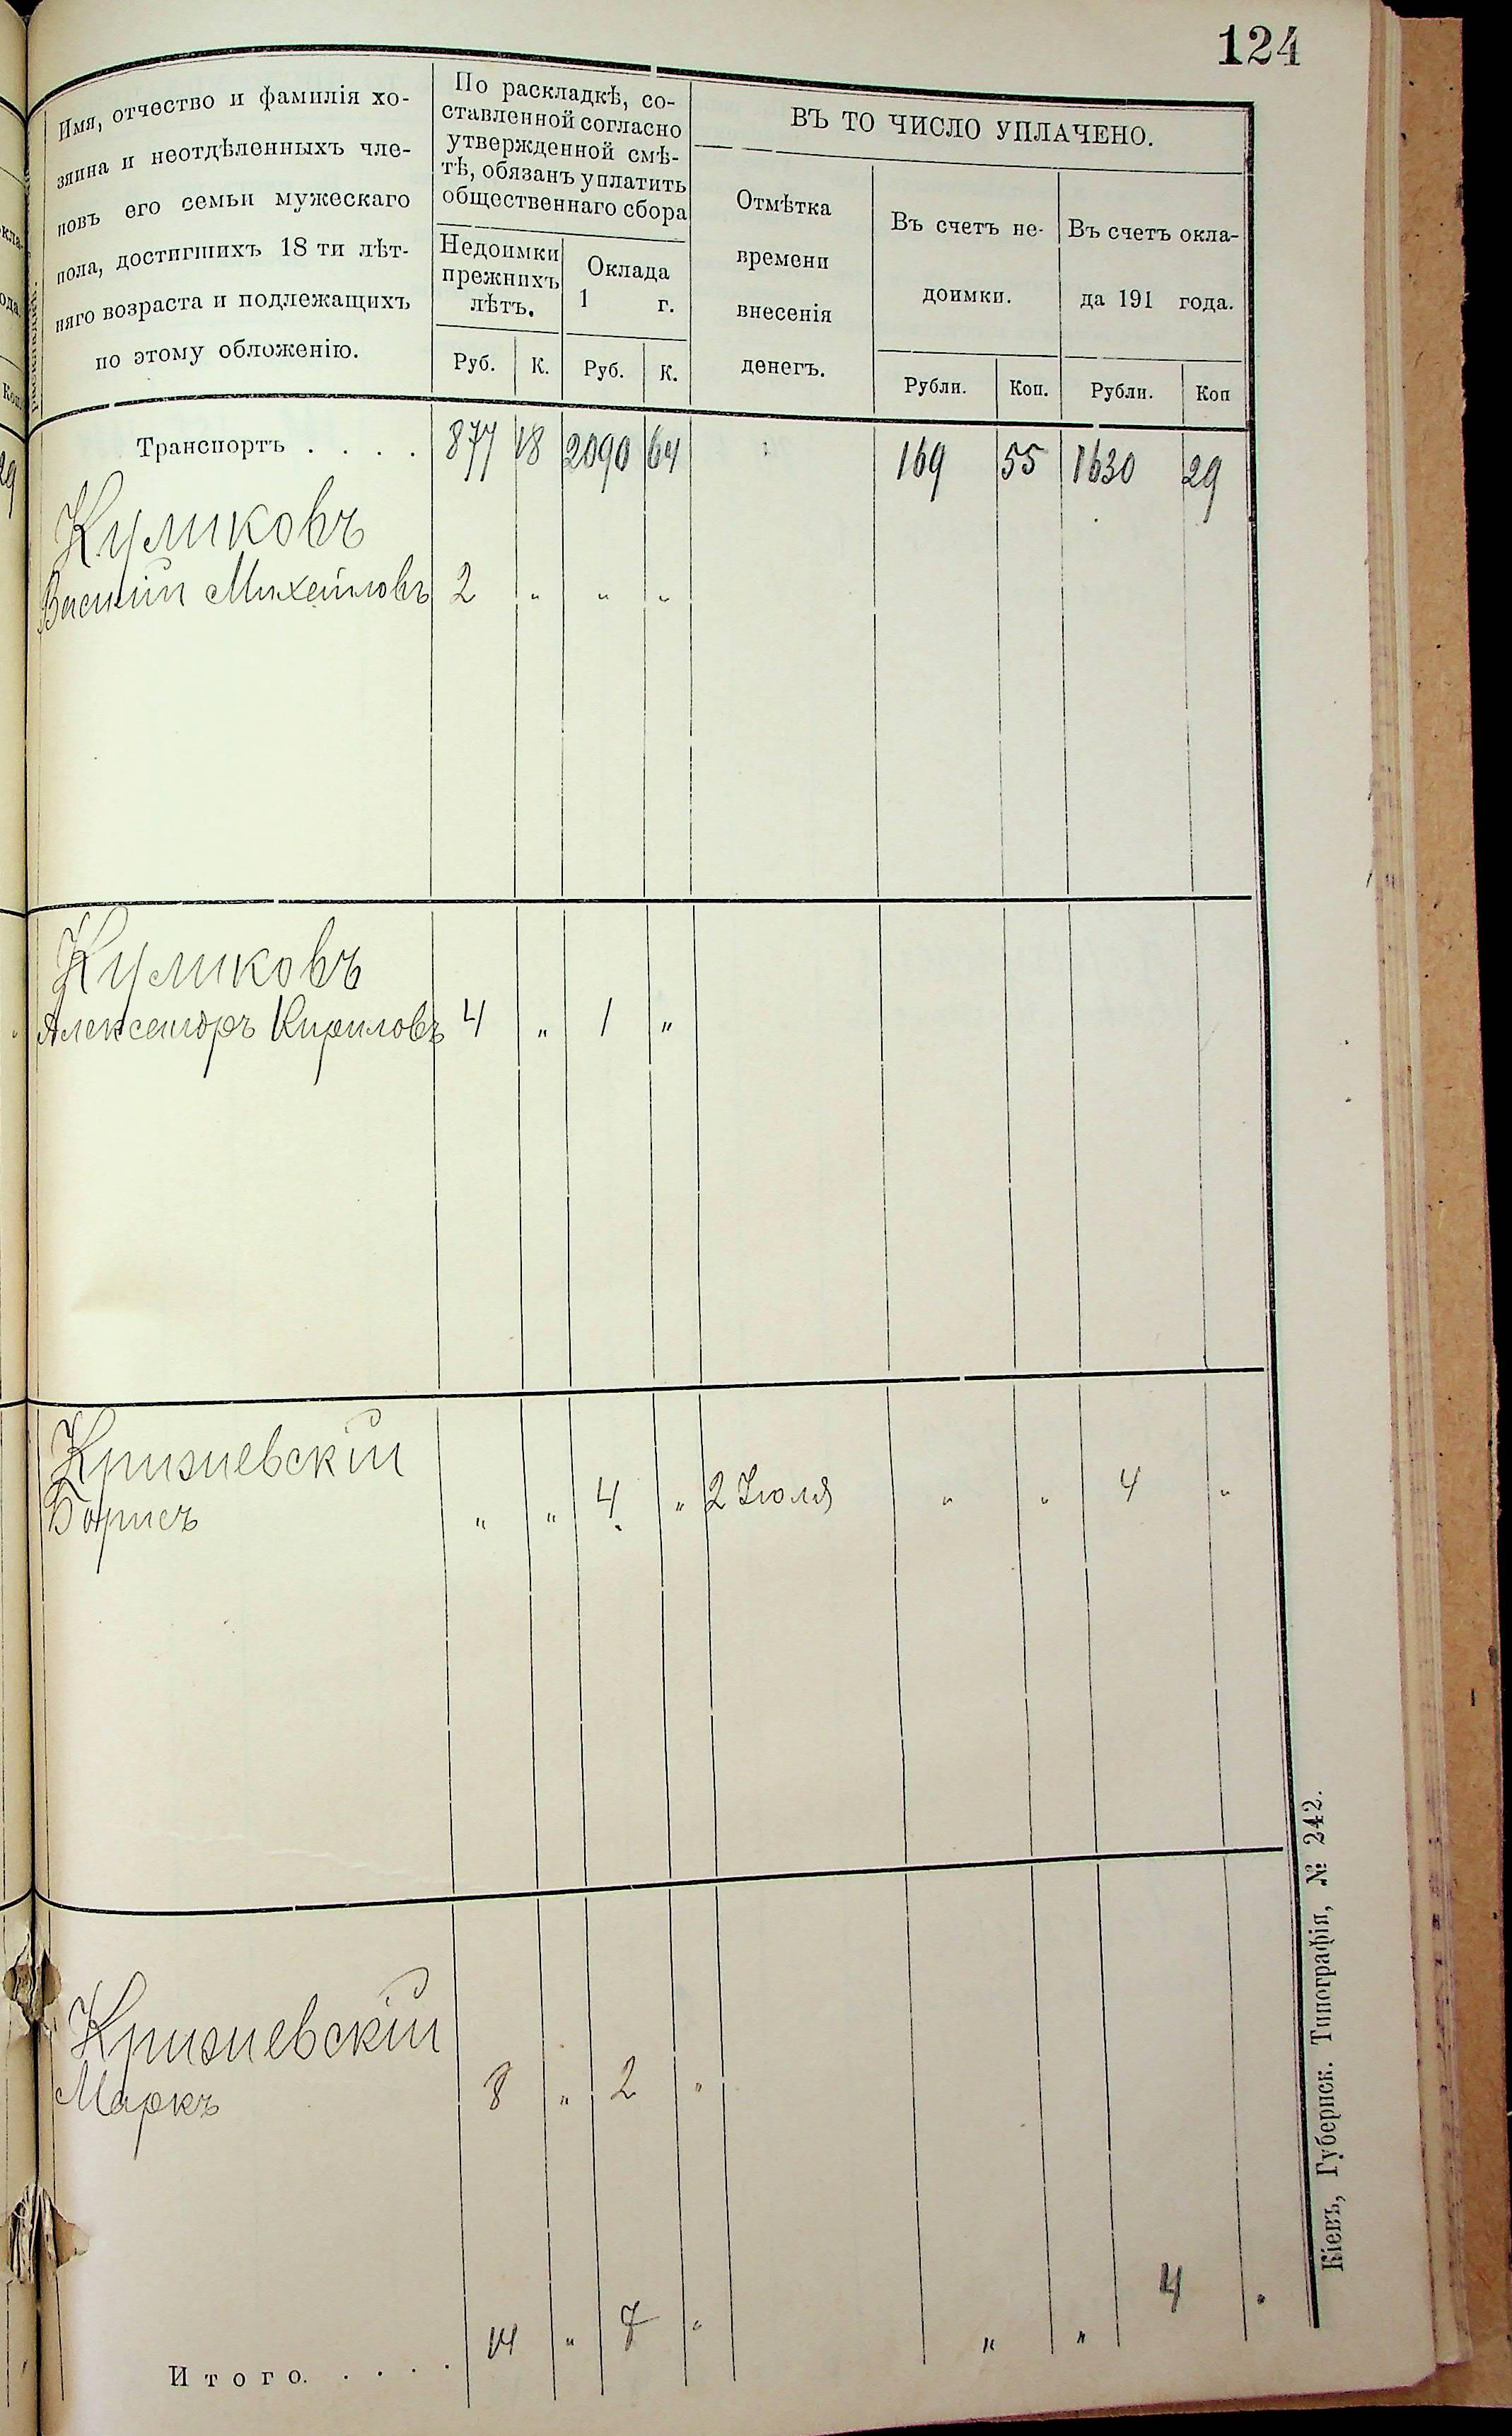 124
Имя, отчество и фамилія хо-
зяина и неотдѣленныхъ чле-
новъ его семьи мужескаго
пола, достигшихъ 18 ти лѣт-
няго возраста и подлежащихъ
по этому обложенію.
По раскладкѣ, со-
ставленной согласно
утвержденной смѣ-
тѣ, обязанъ уплатить
общественнаго сбора
Недоимки
прежнихъ
лѣтъ.
Оклада
1 г.
Руб. К. Руб. К.
ВЪ ТО ЧИСЛО УПЛАЧЕНО.
Отмѣтка
времени
внесенія
денегъ.
Въ счетъ не-
доимки.
Въ счетъ окла-
да 191 года.
Рубли. Коп. Рубли. Коп
Транспортъ . . . . 877 18 2090 64 169 55 1630 29
Куликовъ
Василій Михейловъ 2 " " "
Куликовъ
Александръ Кириловъ 4 " 1 "
Кризиевскій
Борисъ " " 4 " 2 Іюля " " 4 "
Кризиевскій
Маркъ 8 " 2 "
Итого. . . . . 14 " 7 " " " 4 "
Кіевъ, Губернск. Типографія, № 242.